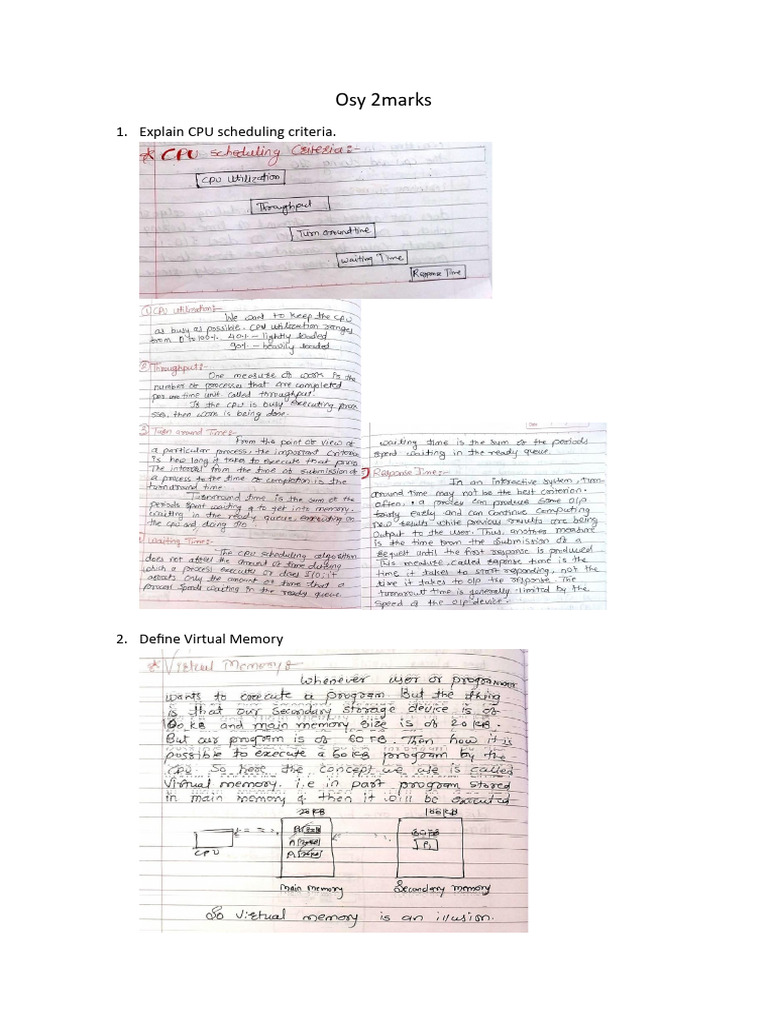 Osy 2marks
1. Explain CPU scheduling criteria.
* CPU Scheduling Criteria:-
CPU Utilization
Throughput
Turn around time
Waiting Time
Response Time
① CPU utilization:-
We want to keep the CPU
as busy as possible. CPU utilization ranges
from 0 to 100%. 40% - lightly loaded
90% - heavily loaded
② Throughput:-
One measure of work is the
number of processes that are completed
per time unit called throughput.
If the CPU is busy executing proce
sses, then work is being done.
3 Turn around Time:-
From the point of view of
a particular process, the important criterion
is how long it takes to execute that
The interval from the time of submission of
a process to the time of completion is the
turnaround time.
Turnaround time is the sum of the
periods spent waiting to get into memory,
waiting in the ready queue, executing on
the CPU and doing I/O.
Waiting Time:-
The CPU scheduling algorithm
does not affect the amount of time during
which a process executes or does I/O; it
affects only the amount of time that a
process spends waiting in the ready queue
waiting time is the sum of the periods
spent waiting in the ready queue.
Response Time:-
In an interactive system, Turn-
around Time may not be the best criterion.
often, a process can produce some o/p
fairly early and can continue computing
new results while previous results are being
Output to the user. Thus, another measure
is the time from the submission of a
request until the first response is produced
This measure, called response time is the
time it takes to start responding, not the
time it takes to o/p the response. The
turnaround time is generally limited by the
speed of the o/p device.
2. Define Virtual Memory
* Virtual Memory:-
Whenever user or programmer
wants to execute a program. But the thing
is that our secondary storage device is of
KB and main memory size is of 20 KB.
But our program is of 60 KB. Then how it is
possible to execute a 60 KB program by the
CPU. So here the concept we use is called
Virtual memory. i.e in part program stored
in main memory & then it will be executed
20 KB
100 KB
CPU
60 KB
P1
Main Memory
Secondary memory
So Virtual memory is an illusion.